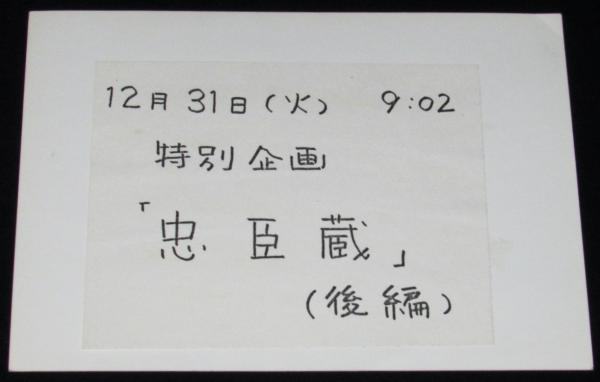 12月31日(火) 9:02
特別企画
「忠臣蔵」
(後編)